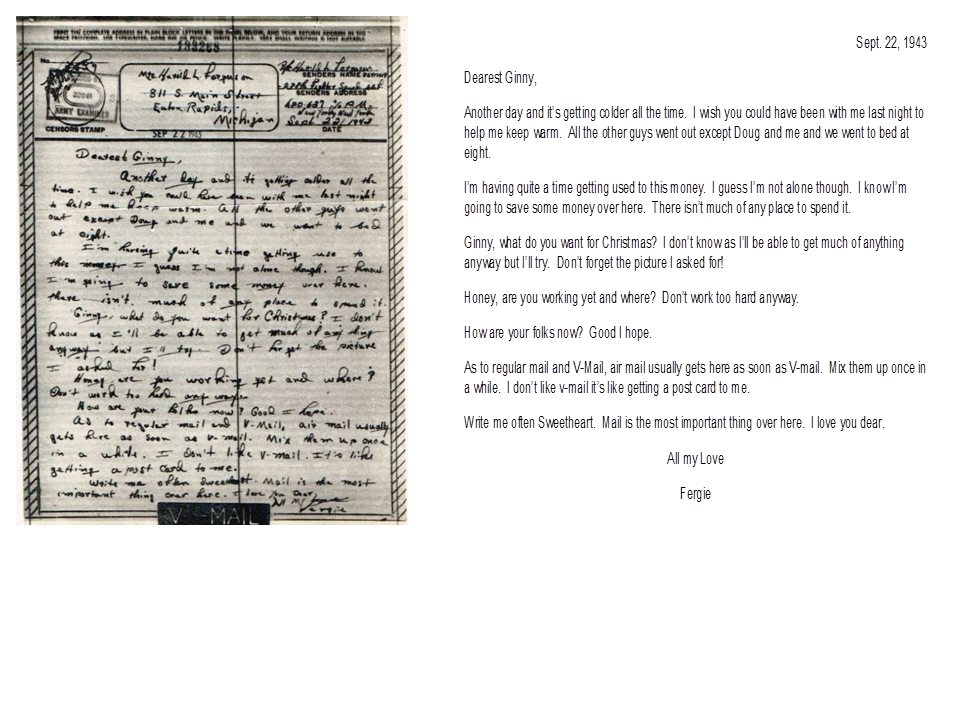 PRINT THE COMPLETE ADDRESS IN PLAIN BLOCK LETTERS IN THE PANEL BELOW, AND YOUR RETURN ADDRESS IN THE
SPACE PROVIDED. USE TYPEWRITER, DARK INK, OR PENCIL. WRITE PLAINLY. VERY SMALL WRITING IS NOT SUITABLE.
No.
ARMY EXAMINER
CENSORS STAMP
Mrs. Harold L. Ferguson
811 S. Main Street
Eaton Rapids,
Michigan
SENDERS NAME
SENDERS ADDRESS
Sept 22/1943
DATE
SEP 22 1943
Dearest Ginny,
Another day and its getting colder all the
time. I wish you could have been with me last night
to help me keep warm. All the other guys went
out except Doug and me and we went to bed
at eight.
I'm having quite a time getting use to
this money I guess I'm not alone though. I know
I'm going to save some money over here.
there isn't. much of any place to spend it.
Ginny, what do you want for Christmas? I don't
know as I'll be able to get much of any thing
anyway but I'll try. Don't forget the picture
I asked for!
Honey are you working yet and where?
Don't work too hard any way.
How are your folks now? Good I hope.
As to regular mail and V-Mail, air mail usually
gets here as soon as V-mail. Mix them up once
in a while. I don't like V-mail. It's like
getting a post card to me.
Write me often Sweetheart. Mail is the most
important thing over here. I love you dear.
All my Love
Fergie
V-MAIL
Sept. 22, 1943
Dearest Ginny,
Another day and it's getting colder all the time. I wish you could have been with me last night to
help me keep warm. All the other guys went out except Doug and me and we went to bed at
eight.
I'm having quite a time getting used to this money. I guess I'm not alone though. I know I'm
going to save some money over here. There isn't much of any place to spend it.
Ginny, what do you want for Christmas? I don't know as I'll be able to get much of anything
anyway but I'll try. Don't forget the picture I asked for!
Honey, are you working yet and where? Don't work too hard anyway.
How are your folks now? Good I hope.
As to regular mail and V-Mail, air mail usually gets here as soon as V-mail. Mix them up once in
a while. I don't like v-mail it's like getting a post card to me.
Write me often Sweetheart. Mail is the most important thing over here. I love you dear.
All my Love
Fergie